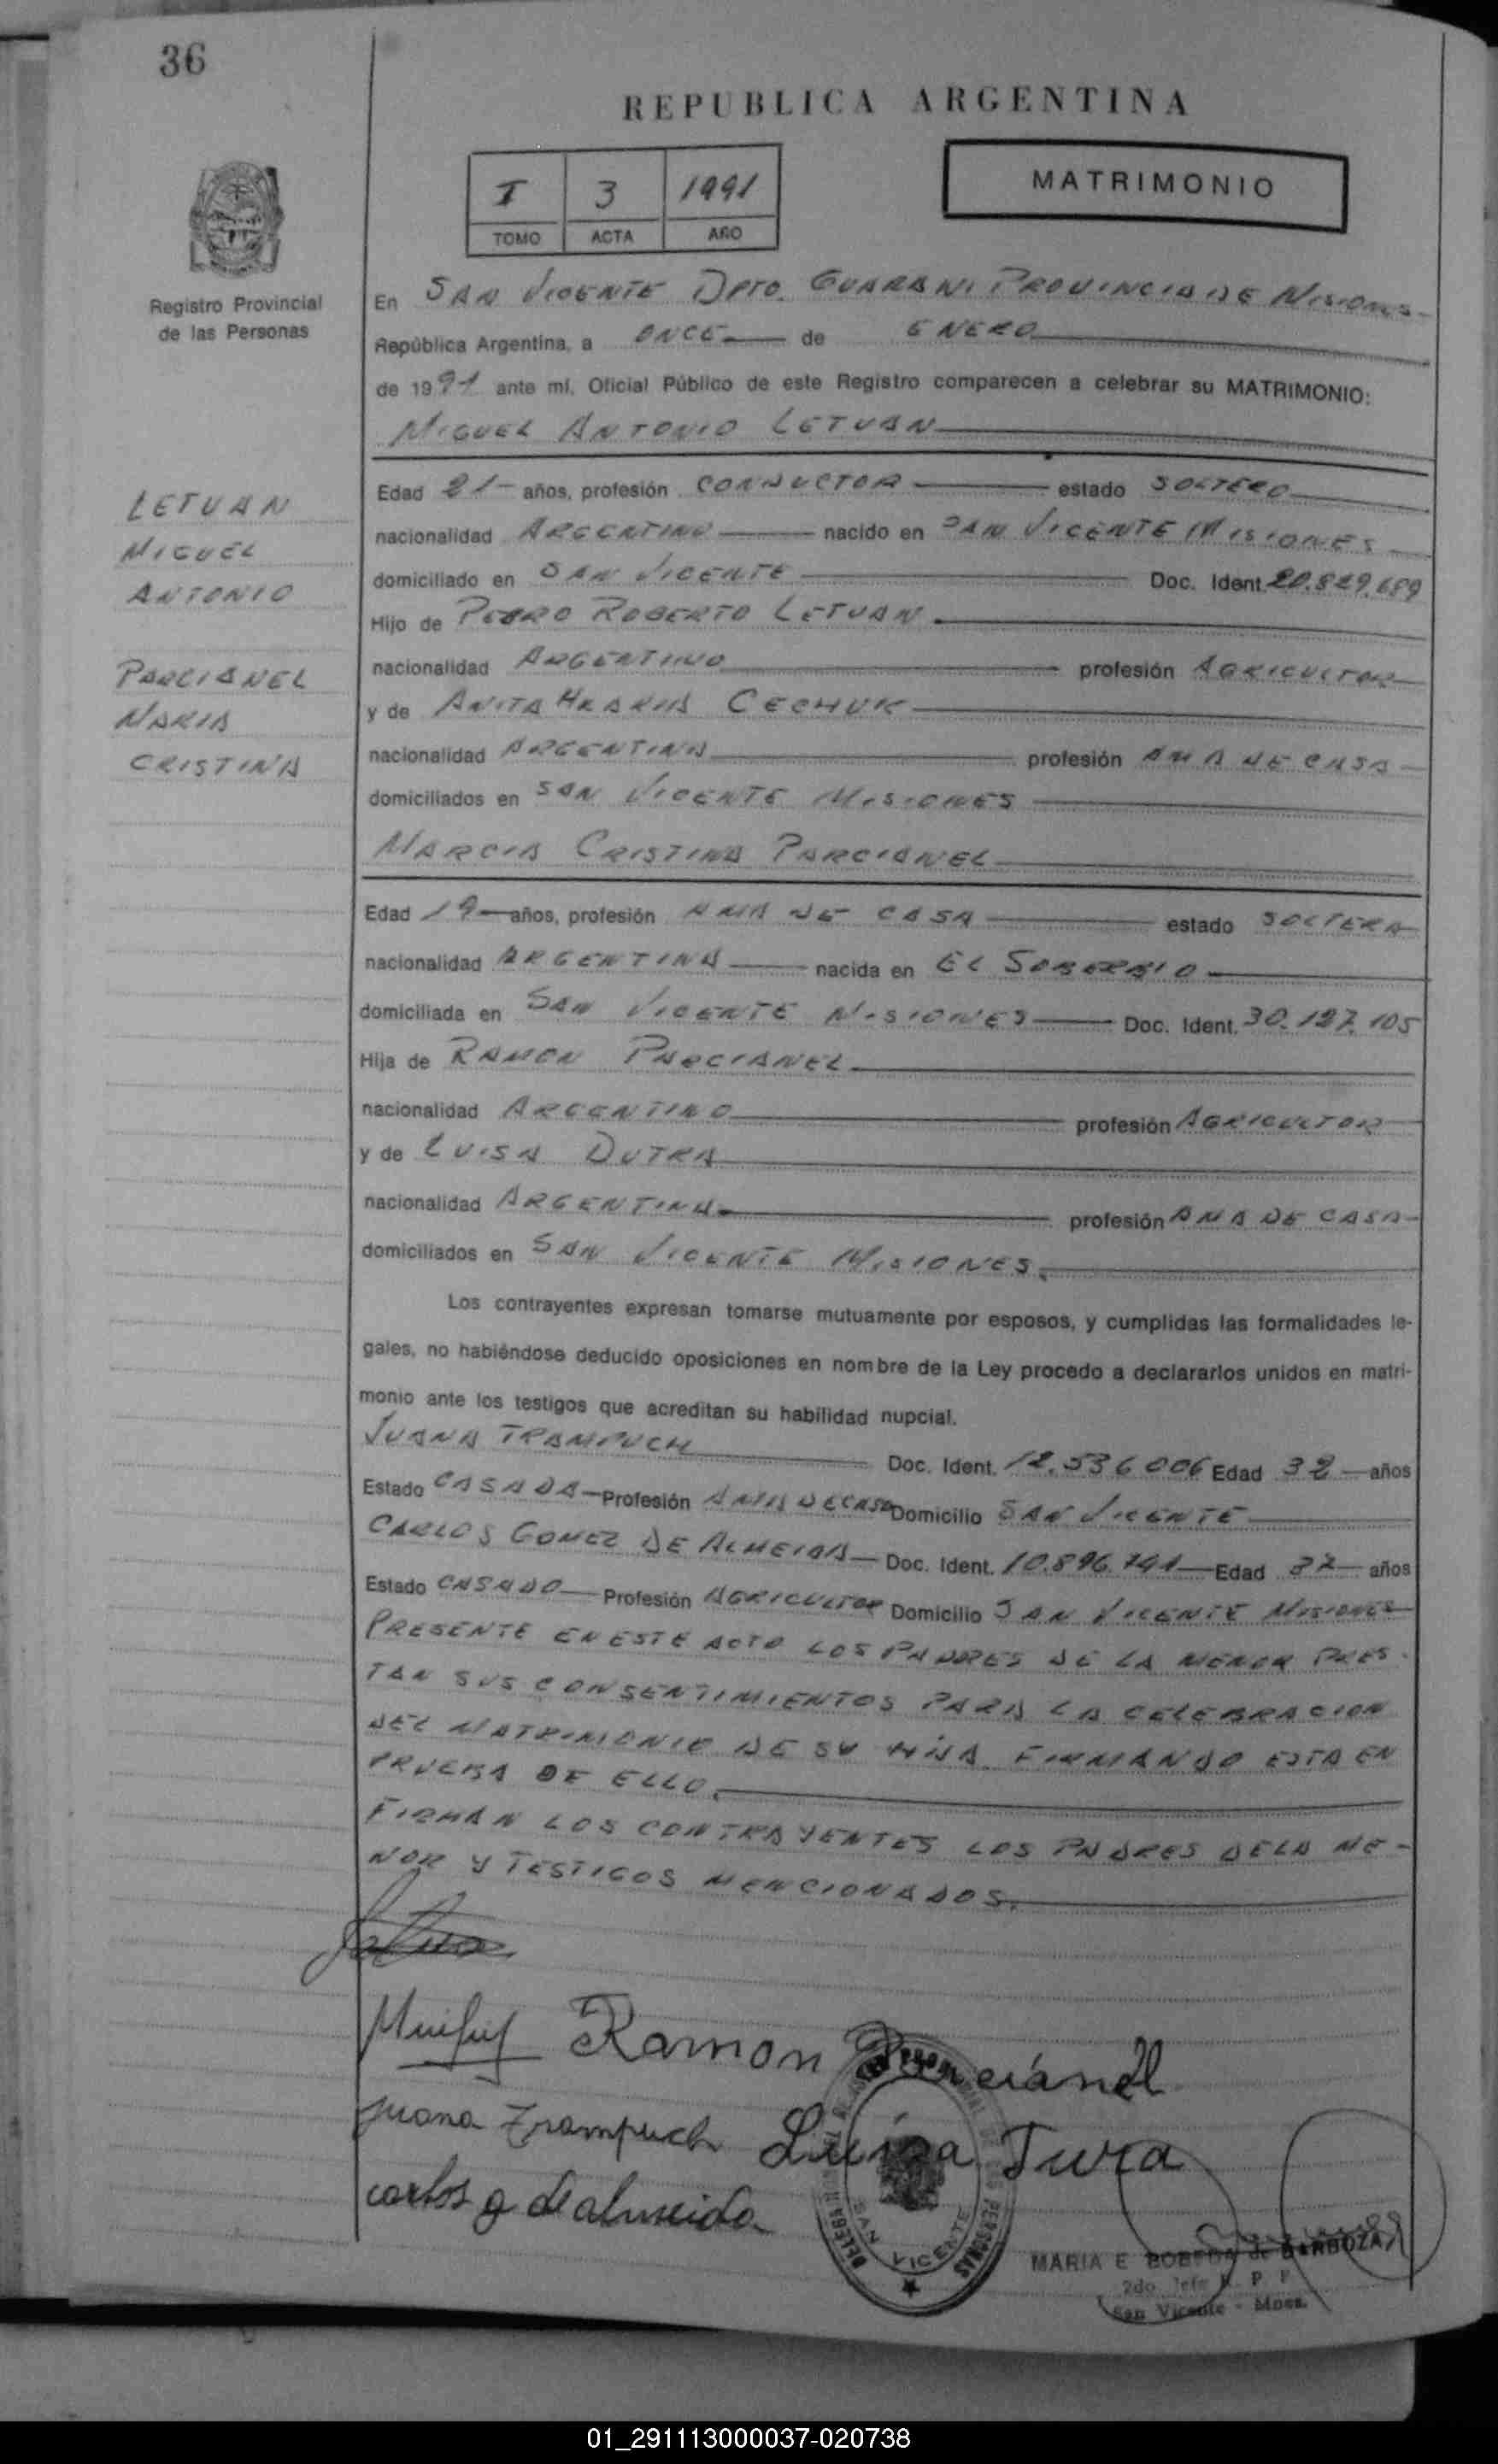 36
REPUBLICA ARGENTINA
I 3 1991
TOMO ACTA AÑO
MATRIMONIO
Registro Provincial
de las Personas
En SAN VICENTE DPTO. GUARANI PROVINCIA DE MISIONES
República Argentina, a ONCE de ENERO
de 1991 ante mí, Oficial Público de este Registro comparecen a celebrar su MATRIMONIO:
MIGUEL ANTONIO LETUAN
LETUAN
MIGUEL
ANTONIO
PARCIANEL
MARIA
CRISTINA
Edad 21 años, profesión CONDUCTOR estado SOLTERO
nacionalidad ARGENTINO nacido en SAN VICENTE MISIONES
domiciliado en SAN VICENTE Doc. Ident. 20.829.689
Hijo de PEDRO ROBERTO LETUAN
nacionalidad ARGENTINO profesión AGRICULTOR
y de ANITA CECHUK
nacionalidad ARGENTINA profesión AMA DE CASA
domiciliados en SAN VICENTE MISIONES
MARCIA CRISTINA PARCIANEL
Edad 19 años, profesión AMA DE CASA estado SOLTERA
nacionalidad ARGENTINA nacida en EL SOBERBIO
domiciliada en SAN VICENTE MISIONES Doc. Ident. 30.127.105
Hija de RAMON PARCIANEL
nacionalidad ARGENTINO profesión AGRICULTOR
y de LUISA DUTRA
nacionalidad ARGENTINA profesión AMA DE CASA
domiciliados en SAN VICENTE MISIONES.
Los contrayentes expresan tomarse mutuamente por esposos, y cumplidas las formalidades le-
gales, no habiéndose deducido oposiciones en nombre de la Ley procedo a declararlos unidos en matri-
monio ante los testigos que acreditan su habilidad nupcial.
JUANA TRAMPUCH Doc. Ident. 12.536.006 Edad 32 años
Estado CASADA Profesión AMA DE CASA Domicilio SAN VICENTE
CARLOS GOMEZ DE ALMEIDA Doc. Ident. 10.896.741 Edad 37 años
Estado CASADO Profesión AGRICULTOR Domicilio SAN VICENTE MISIONES
PRESENTE EN ESTE ACTO LOS PADRES DE LA MENOR PRES-
TAN SUS CONSENTIMIENTOS PARA LA CELEBRACION
DEL MATRIMONIO DE SU HIJA FIRMANDO ESTA EN
PRUEBA DE ELLO.
FIRMAN LOS CONTRAYENTES LOS PADRES DE LA ME-
NOR Y TESTIGOS MENCIONADOS.
Ramon Parcianel
Juana Trampuch Luisa Tura
carlos g de almeida
SAN VICENTE
MARIA E BOBEDA de BARBOZA
2do Jefe R. P. P.
San Vicente - Mnes.
01_291113000037-020738